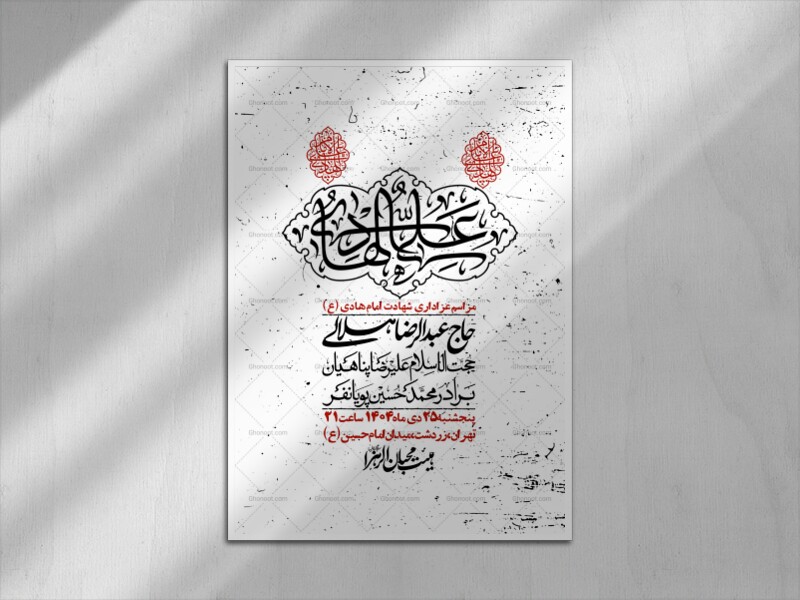 علی الهادی
مراسم عزاداری شهادت امام هادی (ع)
حاج عبدالرضا هلالی
حجت الاسلام علیرضا پناهیان
برادر محمدحسین پویانفر
پنجشنبه ۲۵ دی ماه ۱۴۰۴ ساعت ۲۱
تهران، زردشت، میدان امام حسین (ع)
بیت محبان الزهرا
Ghonoot.com